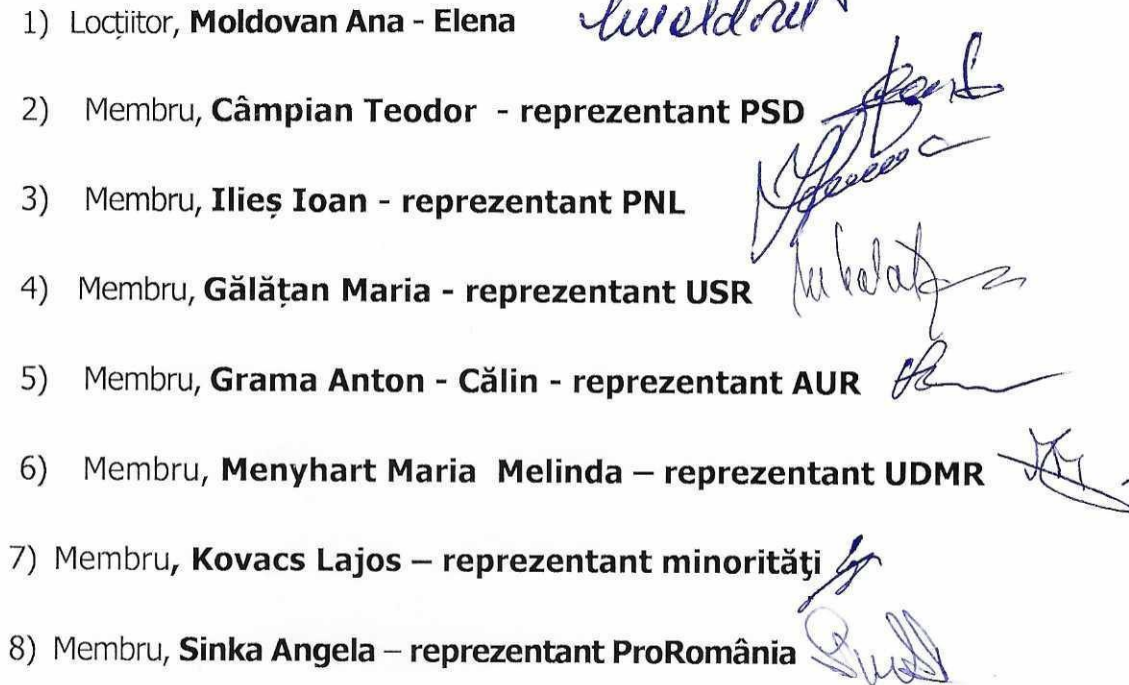 1) Locțiitor, Moldovan Ana - Elena
2) Membru, Câmpian Teodor - reprezentant PSD
3) Membru, Ilieș Ioan - reprezentant PNL
4) Membru, Gălățan Maria - reprezentant USR
5) Membru, Grama Anton - Călin - reprezentant AUR
6) Membru, Menyhart Maria Melinda – reprezentant UDMR
7) Membru, Kovacs Lajos – reprezentant minorităţi
8) Membru, Sinka Angela – reprezentant ProRomânia